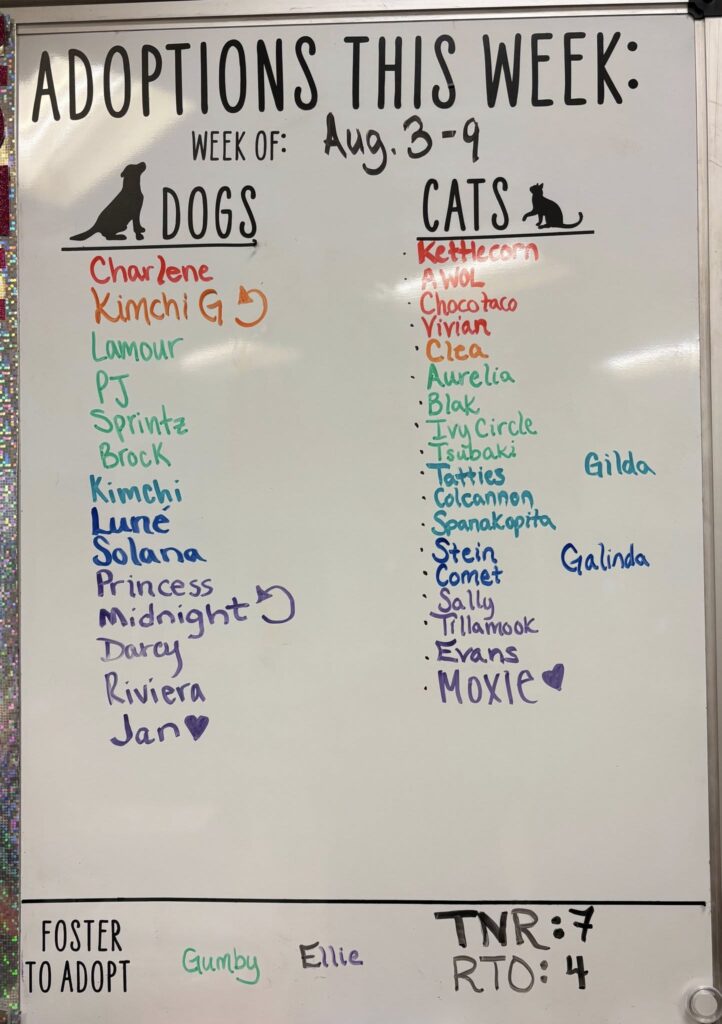 ADOPTIONS THIS WEEK:
WEEK OF: Aug. 3-9
DOGS
Charlene
Kimchi G
Lamour
PJ
Sprintz
Brock
Kimchi
Luné
Solana
Princess
Midnight
Darcy
Riviera
Jan
CATS
Kettlecorn
AWOL
Chocotaco
Vivian
Clea
Aurelia
Blak
Ivy Circle
Tsubaki
Tatties
Gilda
Colcannon
Spanakopita
Stein
Galinda
Comet
Sally
Tillamook
Evans
Moxie
FOSTER
TO ADOPT
Gumby Ellie
TNR: 7
RTO: 4